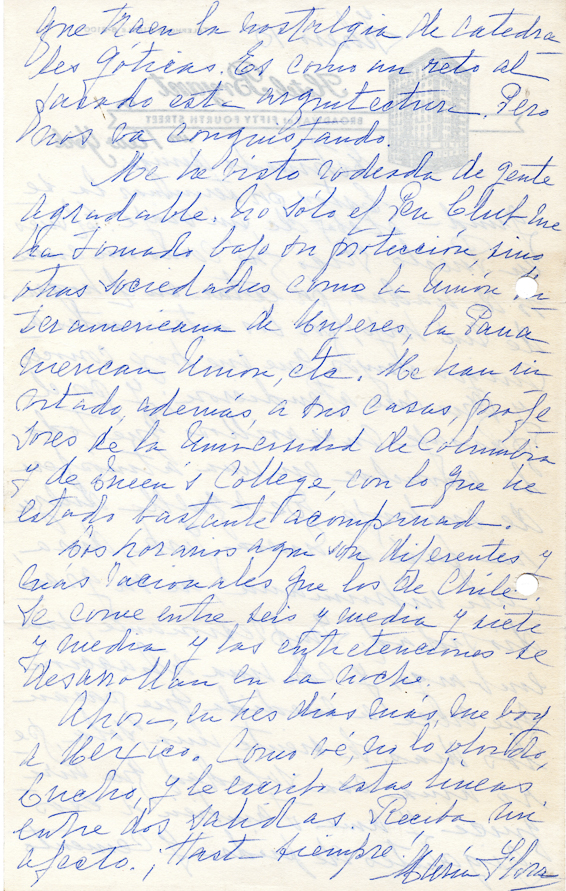 que traen la nostalgia de catedra-
les góticas. Es como un reto al
pasado esta arquitectura. Pero
nos va conquistando.
Me he visto rodeada de gente
agradable. No sólo el Pen Club me
ha tomado bajo su protección, sino
otras sociedades como la Unión In-
teramericana de Mujeres, la Pana-
merican Union, etc. Me han in-
vitado, además, a sus casas, profe-
sores de la Universidad de Columbia
y de Queen's College, con lo que he
estado bastante acompañada.
Los horarios aquí son diferentes y
más racionales que los de Chile.
Se come entre seis y media y siete
y media y las entretenciones se
desarrollan en la noche.
Ahora, en tres días más, me voy
a México. Como vé, no lo olvido,
Lucho, y le escribo estas líneas
entre dos salidas. Reciba mi
afecto. ¡Hasta siempre!
María Flora